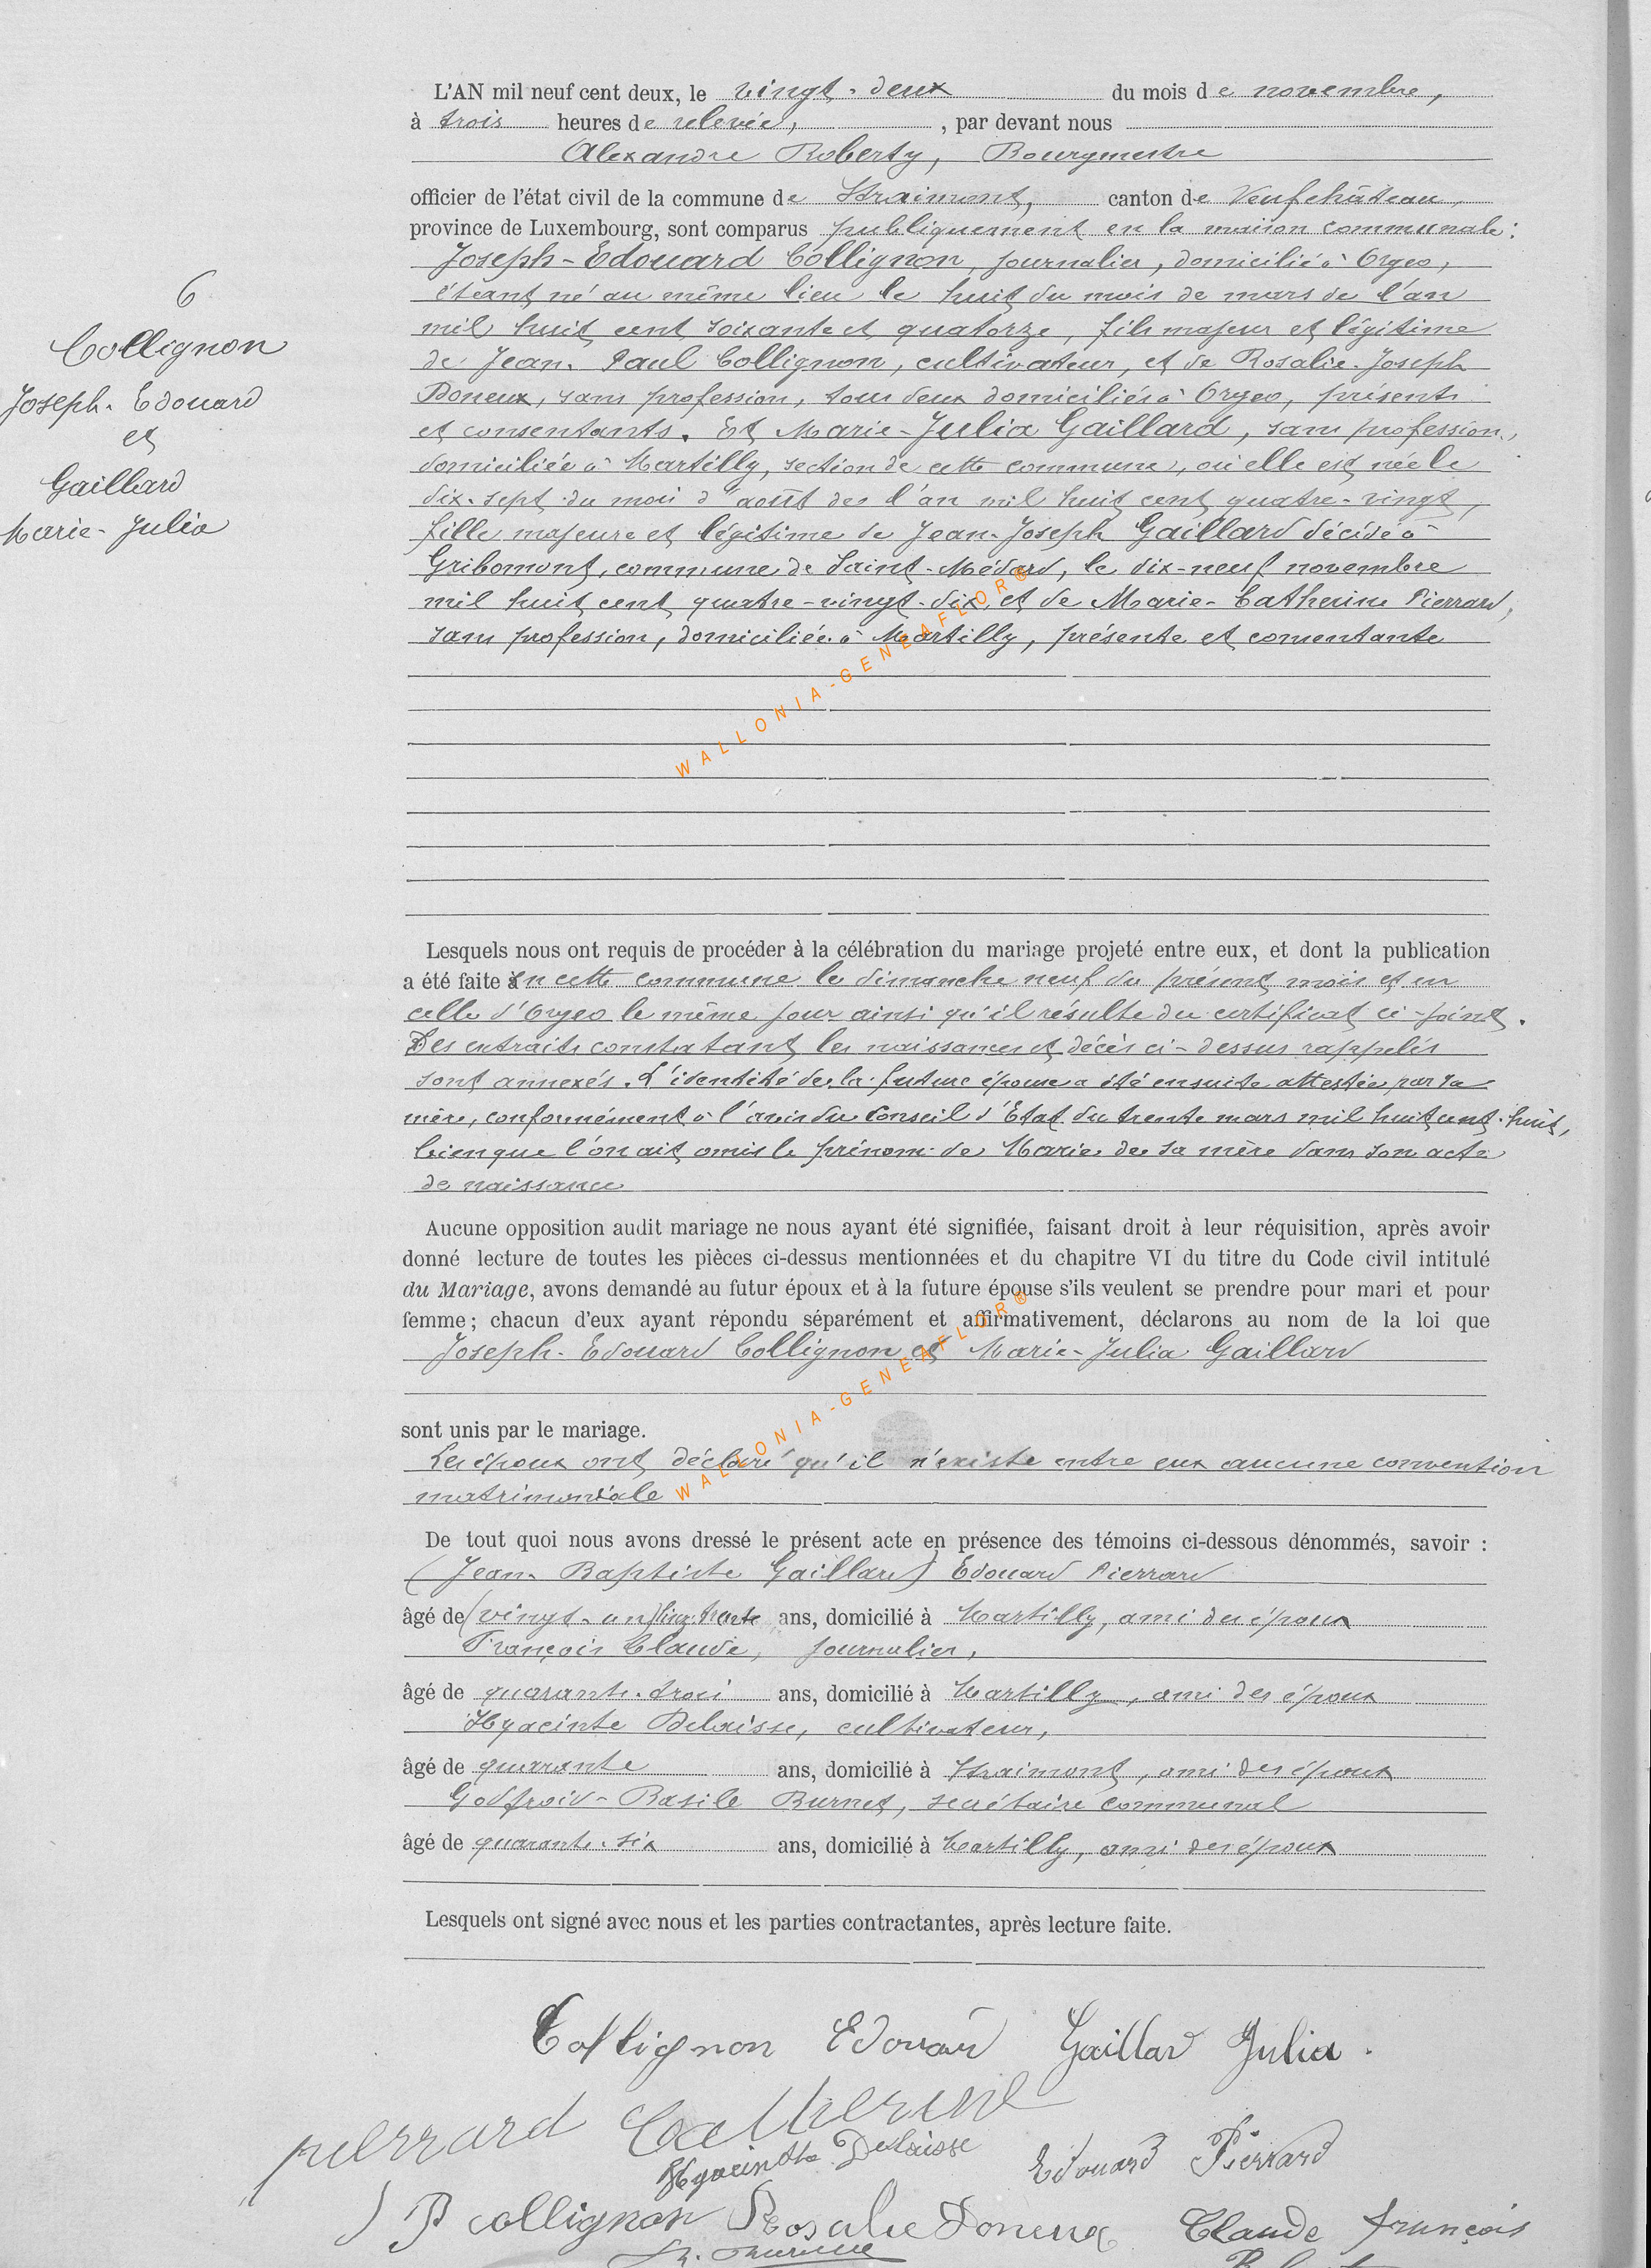 L'AN mil neuf cent deux, le vingt-deux du mois de novembre,
à trois heures de relevée, , par devant nous
Alexandre Roberty, Bourgmestre
officier de l'état civil de la commune de Straimont, canton de Neufchâteau,
province de Luxembourg, sont comparus publiquement en la maison communale:
Joseph-Edouard Collignon, journalier, domicilié à Orgeo,
étant né au même lieu le huit du mois de mars de l'an
6
mil huit cent soixante et quatorze, fils majeur et légitime
Collignon
de Jean-Paul Collignon, cultivateur, et de Rosalie-Joseph
Joseph-Edouard
Doneux, sans profession, tous deux domiciliés à Orgeo, présents
et
et consentants. Et Marie-Julia Gaillard, sans profession,
domiciliée à Martilly, section de cette commune, où elle est née le
Gaillard
dix-sept du mois d'août de l'an mil huit cent quatre-vingt,
Marie-Julia
fille majeure et légitime de Jean-Joseph Gaillard décédé à
Gribomont, commune de Saint-Médard, le dix-neuf novembre
mil huit cent quatre-vingt-dix et de Marie-Catherine Pierrard,
sans profession, domiciliée à Martilly, présente et consentante
WALLONIA-GENEAFLOR®
Lesquels nous ont requis de procéder à la célébration du mariage projeté entre eux, et dont la publication
a été faite en cette commune le dimanche neuf du présent mois et en
celle d'Orgeo le même jour ainsi qu'il résulte du certificat ci-joint.
Des extraits constatant les naissances et décès ci-dessus rappelés
sont annexés. L'identité de la future épouse a été ensuite attestée par sa
mère, conformément à l'avis du Conseil d'Etat du trente mars mil huit cent-huit,
bien que l'on ait omis le prénom de Marie de sa mère dans son acte
de naissance
Aucune opposition audit mariage ne nous ayant été signifiée, faisant droit à leur réquisition, après avoir
donné lecture de toutes les pièces ci-dessus mentionnées et du chapitre VI du titre du Code civil intitulé
du Mariage, avons demandé au futur époux et à la future épouse s'ils veulent se prendre pour mari et pour
femme; chacun d'eux ayant répondu séparément et affirmativement, déclarons au nom de la loi que
Joseph-Edouard Collignon et Marie-Julia Gaillard
WALLONIA-GENEAFLOR®
sont unis par le mariage.
Les époux ont déclaré qu'il n'existe entre eux aucune convention
matrimoniale
De tout quoi nous avons dressé le présent acte en présence des témoins ci-dessous dénommés, savoir :
(Jean-Baptiste Gaillard) Edouard Pierrard
âgé de (vingt-un) trente ans, domicilié à Martilly, ami des époux
François Claude, journalier,
âgé de quarante-trois ans, domicilié à Martilly, ami des époux
Hyacinte Delaisse, cultivateur,
âgé de quarante ans, domicilié à Straimont, ami des époux
Godfroid-Basile Burnet, secrétaire communal
âgé de quarante-six ans, domicilié à Martilly, ami des époux
Lesquels ont signé avec nous et les parties contractantes, après lecture faite.
Collignon Edouard Gaillard Julia.
pierrard Catherine
Hyacinthe Delaisse Edouard Pierrard
J P collignon Rosalie Doneux Claude françois